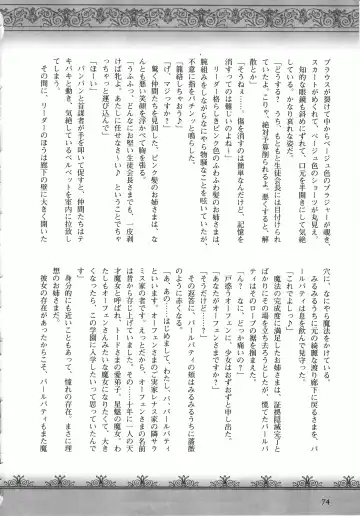 ブラウスが裂けて中からベージュ色のブラジャーが覗き、
スカートがめくれて、ベージュ色のショーツが丸見え、
知的な眼鏡も斜めにずれて、口元を半開きにして気絶
している。かなりあ哀れな姿だ。
「どうする？　うち、もともと生徒会長には目付けられ
てたよね。こりゃ、絶対予算削られるよ。悪くすると解
散とか」
「そうねぇ……。傷を消すのは簡単なんだけど、記憶を
消すってのは難しいのよねー」
リーダー格らしきピンク色のふわふわ髪のお姉さまは、
腕組みをしながらなにやら物騒なことを呟いていたが、
不意に指をパチンッと鳴らした。
「籠絡しちゃおう♪」
「げ？　マジっすか？」
驚く仲間たちに、ピンク髪のお姉さまは、な
んとも悪い笑顔を浮かべて胸を張る。
「うふふっ、どんなにお堅い生徒会長さまでも、一皮剥
けば牝よ。あたしに任せなさ～い♪　ということでちゃ
っちゃっと運び込んで」
「ほーい」
パンパンと首謀者が手を叩いて促すと、仲間たちはテ
キパキと動き、気絶しているベルベットを室内に拉致し
てしまう。
その間に、リーダーのほうは廊下の壁に大きく開いた
穴に、なにやら魔法をかけている。
みるみるうちに元の綺麗な渡り廊下に戻るさまを、パ
ールパティは息を飲んで見守った。
「これでよしっ♪」
魔法の完成度に満足したお姉さまは、証拠隠滅完了と
ばかりにその場を立ち去ろうとしたが、慌てたパールパ
ティはそのローブの裾を掴まえた。
「ん？　なに？　どっか痛いの？」
戸惑うオーフェンに、少女はおずおずと申し出た。
「あなたがオーフェンさまですか？」
「そうだけど……？」
その返答に、パールパティの頬はみるみるうちに薔薇
のように赤くなる。
「あ、あの……はじめまして、わたし、パ、パールパティ
ミス家の者です。えっとだから、オーフェンさまの名前
は昔から存じ上げていました。その……十年に一人の天
才魔女と呼ばれ、トードさまの愛弟子、星魅の魔女、わ
たしもオーフェンさんみたいな魔女になりたくて、大き
くなったら、この学園に入学したいって思っていたんで
す」
身分的にも近いこともあって、憧れの存在。まさに理
想のお姉さまだ。
彼女の存在があったからこそ、パールパティもまた魔
74